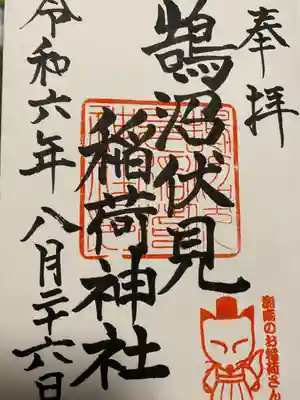 奉拝
鵠沼伏見
稲荷神社
令和六年 八月二十六日
湘南のお稲荷さん